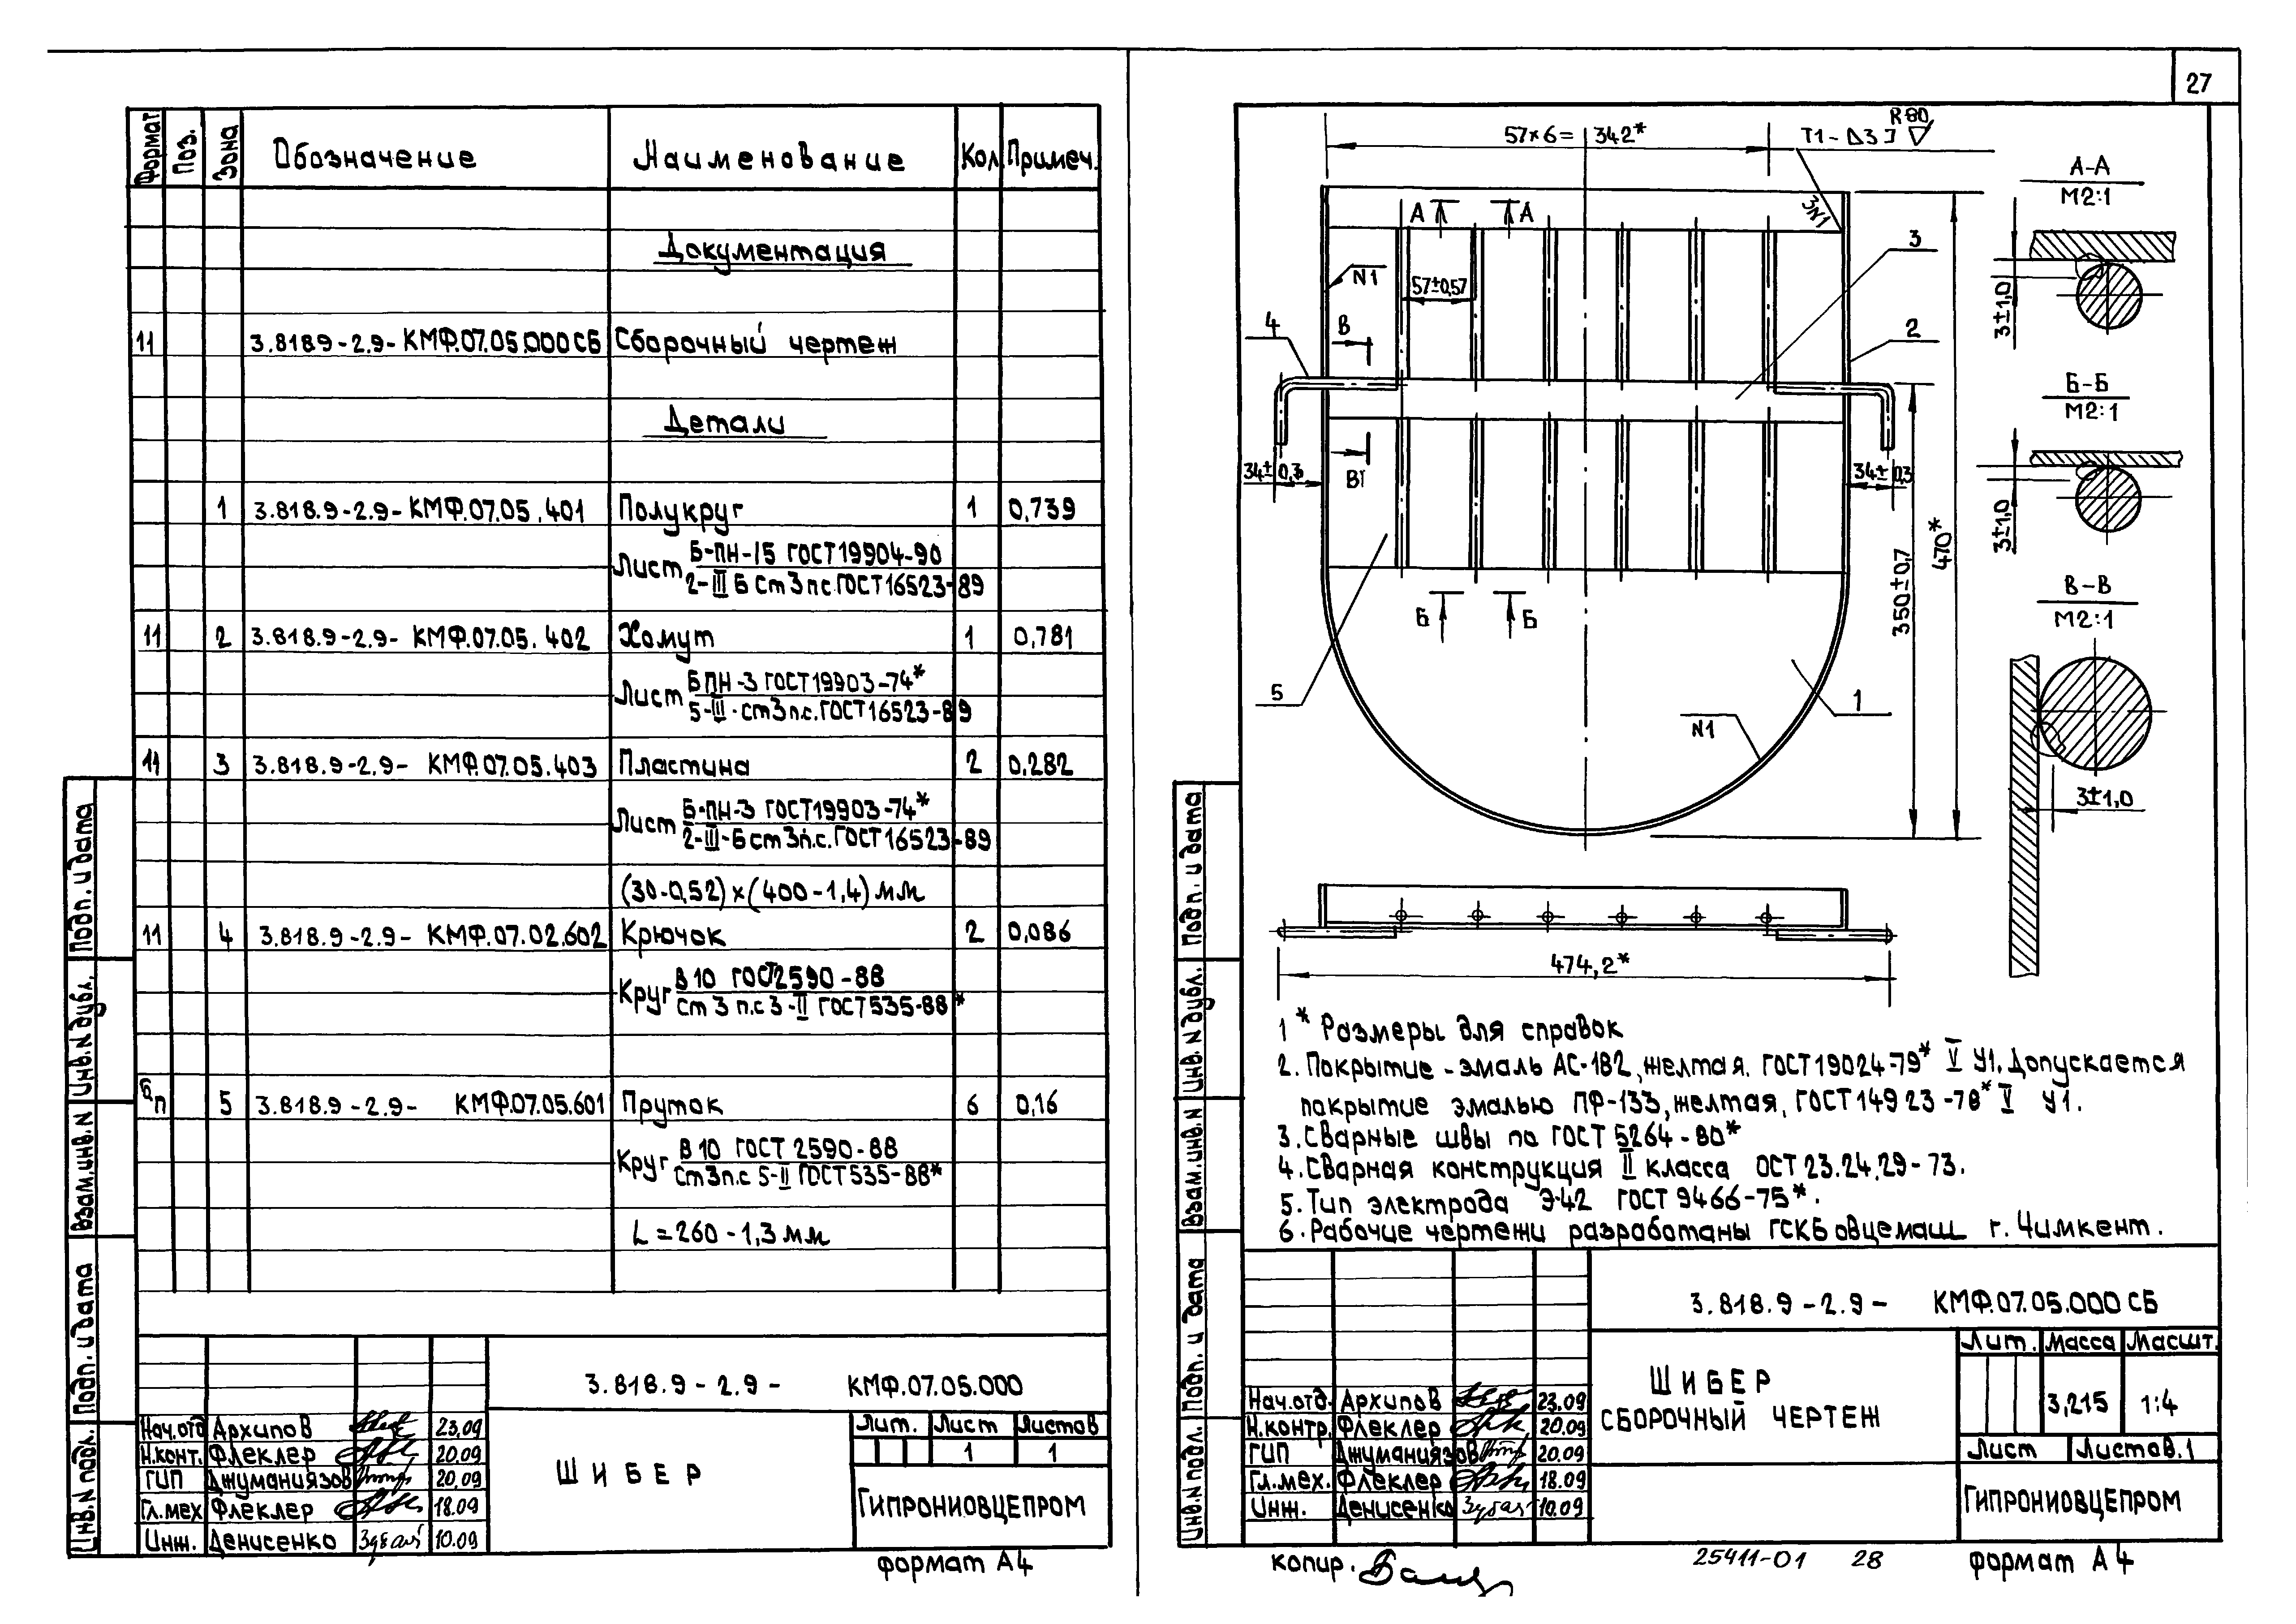 27
Формат Поз. Зона Обозначение Наименование Кол Примеч.
Документация
11 3.818.9-2.9- КМФ.07.05.000СБ Сборочный чертеж
Детали
1 3.818.9-2.9- КМФ.07.05.401 Полукруг 1 0,739
Лист Б-ПН-15 ГОСТ19904-90
2-III Б Ст3пс.ГОСТ16523-89
11 2 3.818.9-2.9- КМФ.07.05.402 Хомут 1 0,781
Лист БПН-3 ГОСТ19903-74*
5-III-ст3п.с.ГОСТ16523-89
11 3 3.818.9-2.9- КМФ.07.05.403 Пластина 2 0,282
Лист Б-ПН-3 ГОСТ19903-74*
2-III-Б ст3п.с.ГОСТ16523-89
(30-0,52)×(400-1,4)мм
11 4 3.818.9-2.9- КМФ.07.02.602 Крючок 2 0,086
Круг В10 ГОСТ2590-88
Ст3п.с3-II ГОСТ535-88*
б/п 5 3.818.9-2.9- КМФ.07.05.601 Пруток 6 0,16
Круг В10 ГОСТ 2590-88
Ст3п.с 5-II ГОСТ535-88*
L=260-1,3мм
Подп. и дата
Инв.N дубл.
Взам.инв.N
Подп. и дата
Инв.N подл.
3.818.9-2.9- КМФ.07.05.000
Нач.отд Архипов 23.09
Н.конт. Флеклер 20.09
ГИП Джуманиязов 20.09
Гл.мех Флеклер 18.09
Инж. Денисенко 10.09
ШИБЕР
Лит. Лист Листов
1 1
ГИПРОНИОВЦЕПРОМ
формат А4
57×6= 342*
Т1-Δ3 R80
3N1
А А
N1
57±0,57
В
В
4
3
2
34±0,3
34±0,3
350±0,7
470*
Б Б
5
1
N1
А-А
М2:1
3±1,0
Б-Б
М2:1
3±1,0
В-В
М2:1
3±1,0
474,2*
1* Размеры для справок
2. Покрытие - эмаль АС-182, желтая. ГОСТ19024-79* V У1. Допускается
покрытие эмалью ПФ-133, желтая, ГОСТ14923-78* V У1.
3. Сварные швы по ГОСТ 5264-80*
4. Сварная конструкция II класса ОСТ 23.24.29-73.
5. Тип электрода Э-42 ГОСТ 9466-75*.
6. Рабочие чертежи разработаны ГСКБ овцемаш г. Чимкент.
Подп. и дата
Инв.N дубл.
Взам.инв.N
Подп. и дата
Инв.N подл.
3.818.9-2.9- КМФ.07.05.000СБ
Нач.отд. Архипов 23.09
Н.контр. Флеклер 20.09
ГИП Джуманиязов 20.09
Гл.мех. Флеклер 18.09
Инж. Денисенко 10.09
ШИБЕР
СБОРОЧНЫЙ ЧЕРТЕЖ
Лит. Масса Масшт.
3,215 1:4
Лист Листов.1
ГИПРОНИОВЦЕПРОМ
копир.
25411-01 28
формат А4